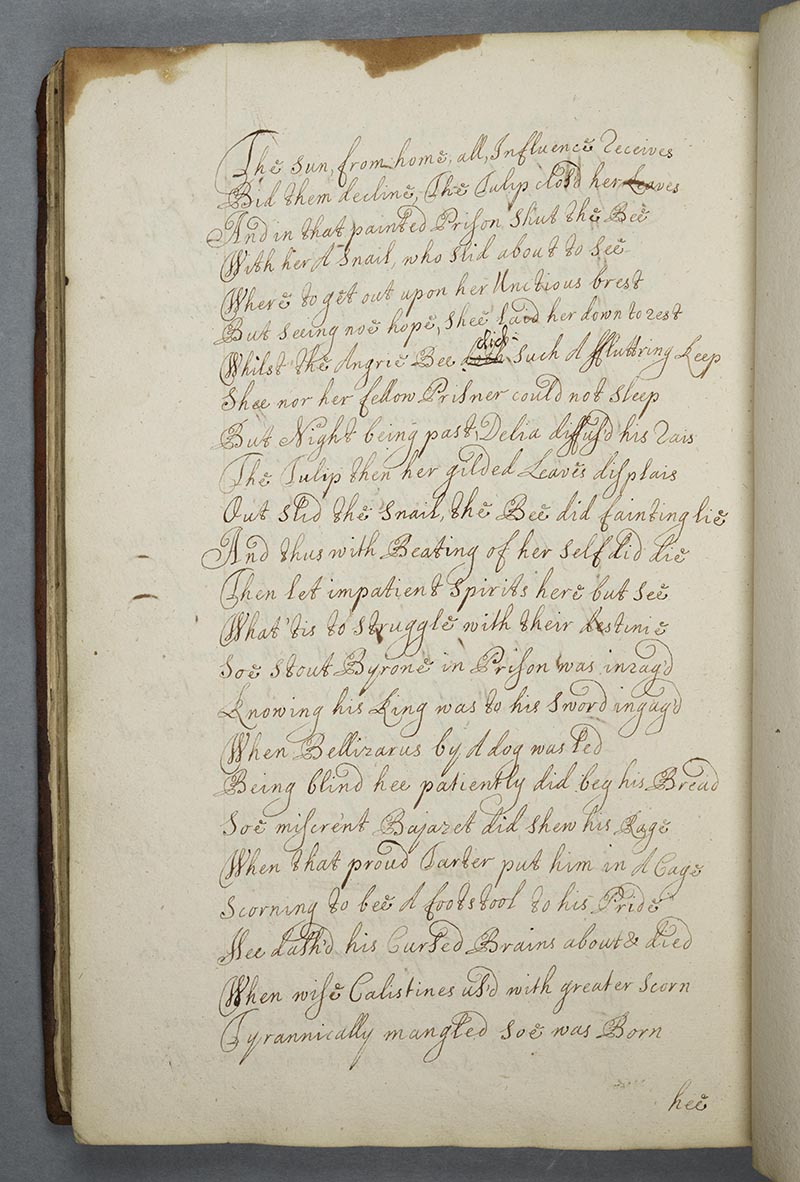 The Sun, from home, all, Influence receives
Bid them decline, The Tulip clos'd her Leaves
And in that painted Prison Shut the Bee
With her A Snail, who slid about to See
Where to get out upon her Unctious brest
But Seeing noe hope, Shee Laid her down to rest
Whilst the Angrie Bee did Such A ffluttring Keep
Shee nor her fellow Prisner could not Sleep
But Night being past, Delia diffus'd his Rais
The Tulip then her gilded Leaves displais
Out Slid the Snail, the Bee did fainting lie
And thus with Beating of her Self did die
Then let impatient Spirits here but See
What 'tis to Struggle with their destinie
Soe Stout Byrone in Prison was inrag'd
Knowing his King was to his Sword ingag'd
When Bellizarus by A dog was led
Being blind hee patiently did beg his Bread
Soe miscrent Bajazet did Shew his Rage
When that proud Tarter put him in A Cage
Scorning to bee A footstool to his Pride
Hee dash'd his Cursed Brains about & died
When wise Calistines us'd with greater Scorn
Tyrannically mangled Soe was Born
hee